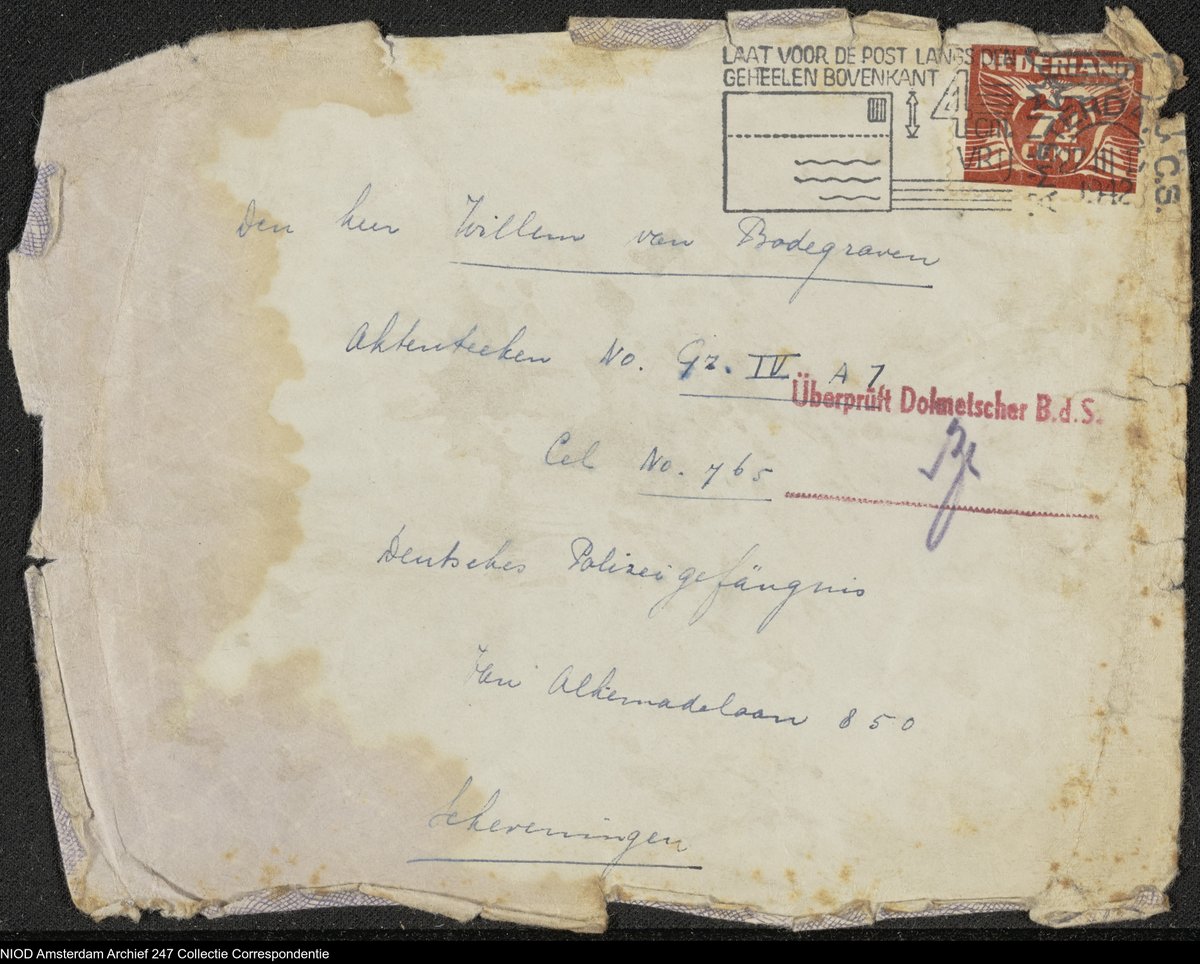 LAAT VOOR DE POST LANGS DEN
GEHEELEN BOVENKANT
4
cm
VRIJ
NEDERLAND
7½
CENT
III
1942
C.S.
Den heer Willem van Bodegraven
Aktenteeken No. Gz. IV A 7
Überprüft Dolmetscher B.d.S.
Cel No. 765
Deutsches Polizeigefängnis
Van Alkemadelaan 850
Scheveningen
NIOD Amsterdam Archief 247 Collectie Correspondentie